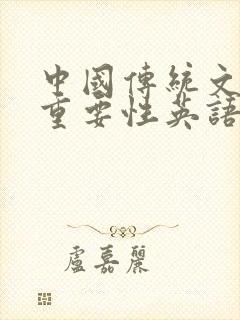 中國傳統文
重要性英語
盧嘉麗